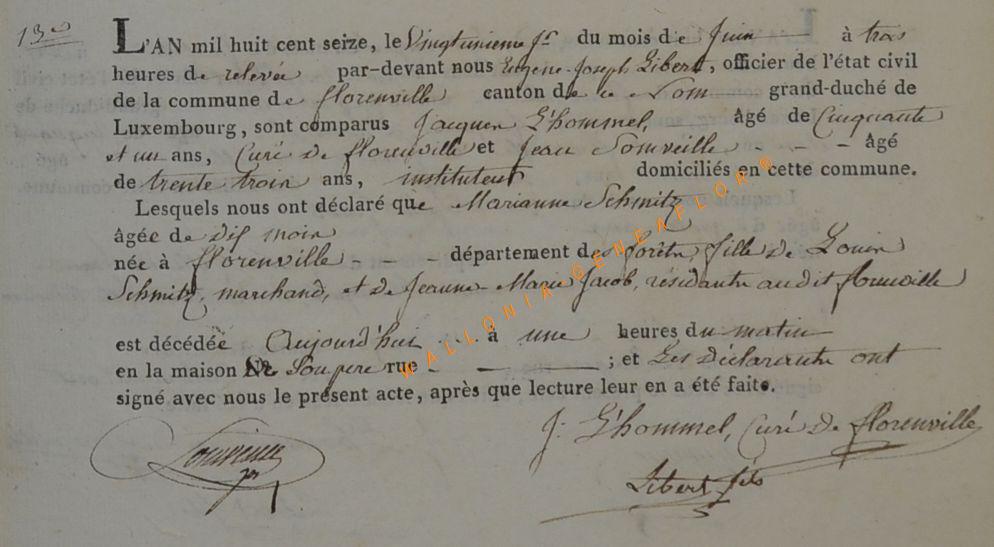 13e
L'AN mil huit cent seize, le Vingtunieme Jr du mois de Juin à trois
heures de relevée par-devant nous Eugene-Joseph Libert, officier de l'état civil
de la commune de florenville canton de grand-duché de
Luxembourg, sont comparus Jacques L'hommel, âgé de Cinquante
et un ans, Curé de florenville et Jean Sonveille - - - âgé
de trente trois ans, instituteur domiciliés en cette commune.
Lesquels nous ont déclaré que Marianne Schmitz
âgée de dix mois
née à florenville - - - département des forêts fille de Louis
Schmitz, marchand, et de Jeanne-Marie Jacob, résidants audit florenville
est décédée Aujourd'hui .... à une heures du matin
en la maison de Son pere rue - - ; et Les déclarants ont
signé avec nous le présent acte, après que lecture leur en a été faite.
J. L'hommel, Curé de florenville
Libert fils
WALLONIA GENEAFLOR ®